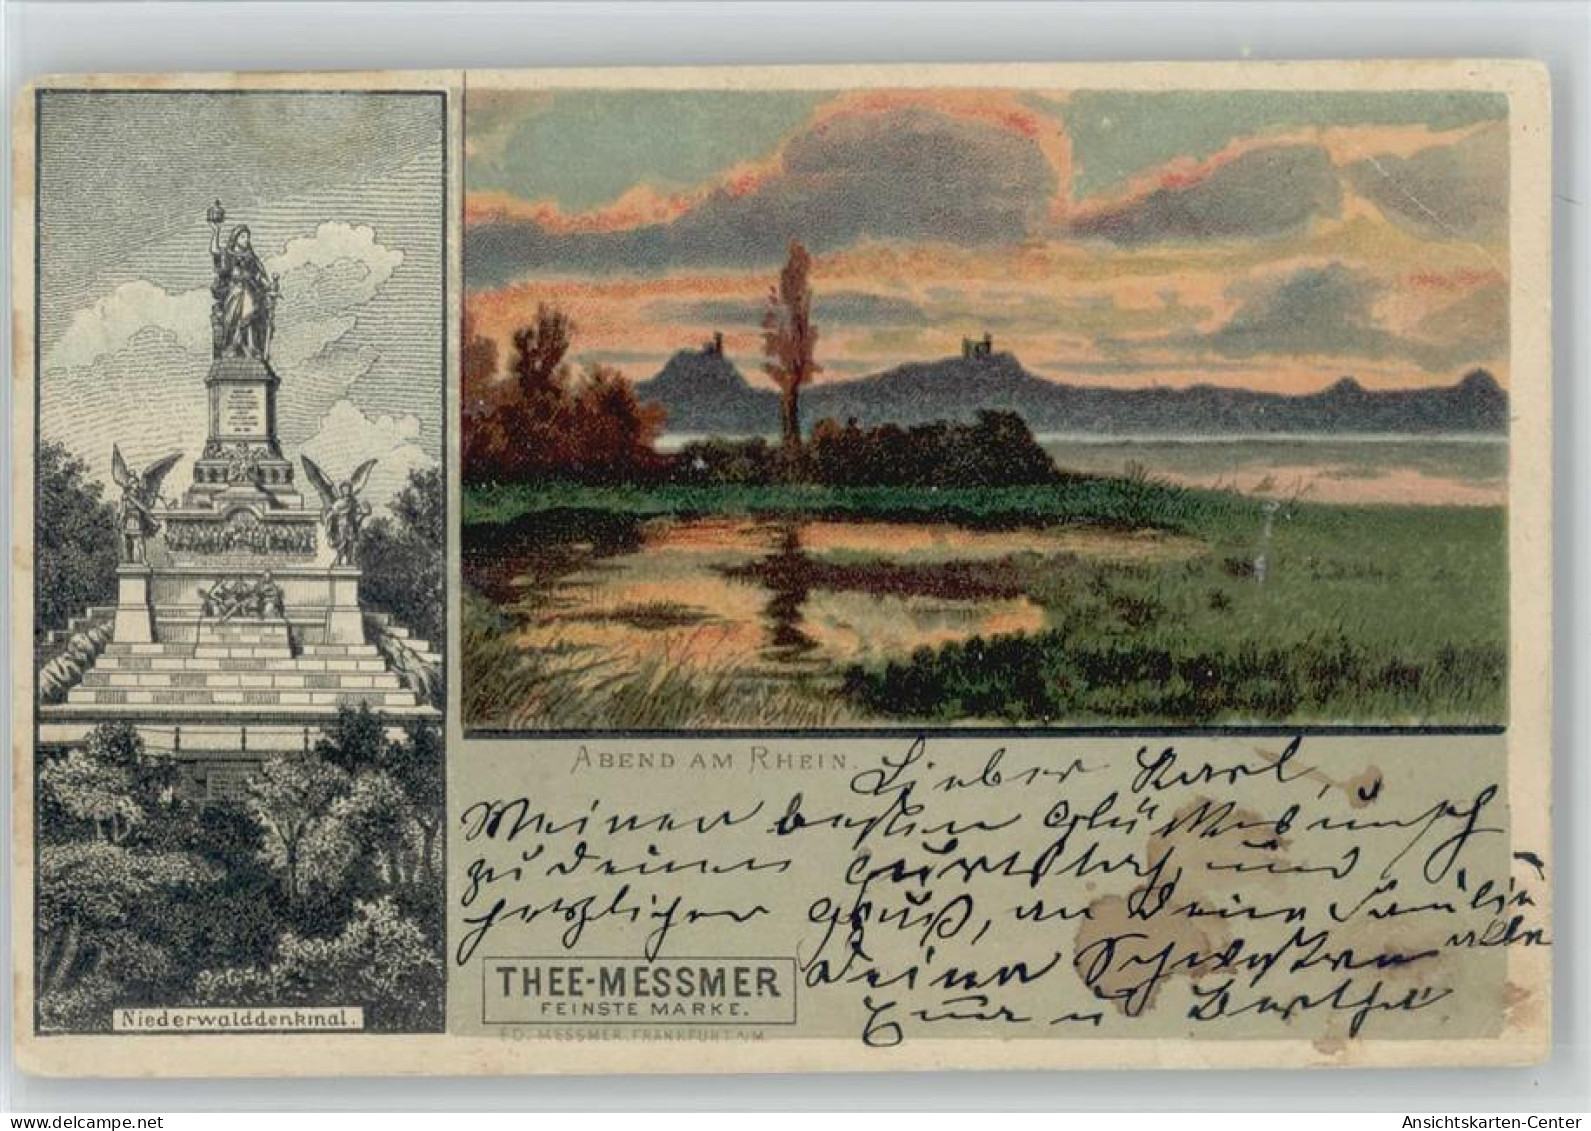 Niederwalddenkmal.
ABEND AM RHEIN.
Lieber Karl,
Meinen besten Glückwunsch
zu deinem Geburtstag und
herzlichen Gruß, an deine Familie
alle
deine Schwestern
u Berthe
THEE-MESSMER
FEINSTE MARKE.
ED. MESSMER, FRANKFURT A/M.
Ansichtskarten-Center
delcampe.net